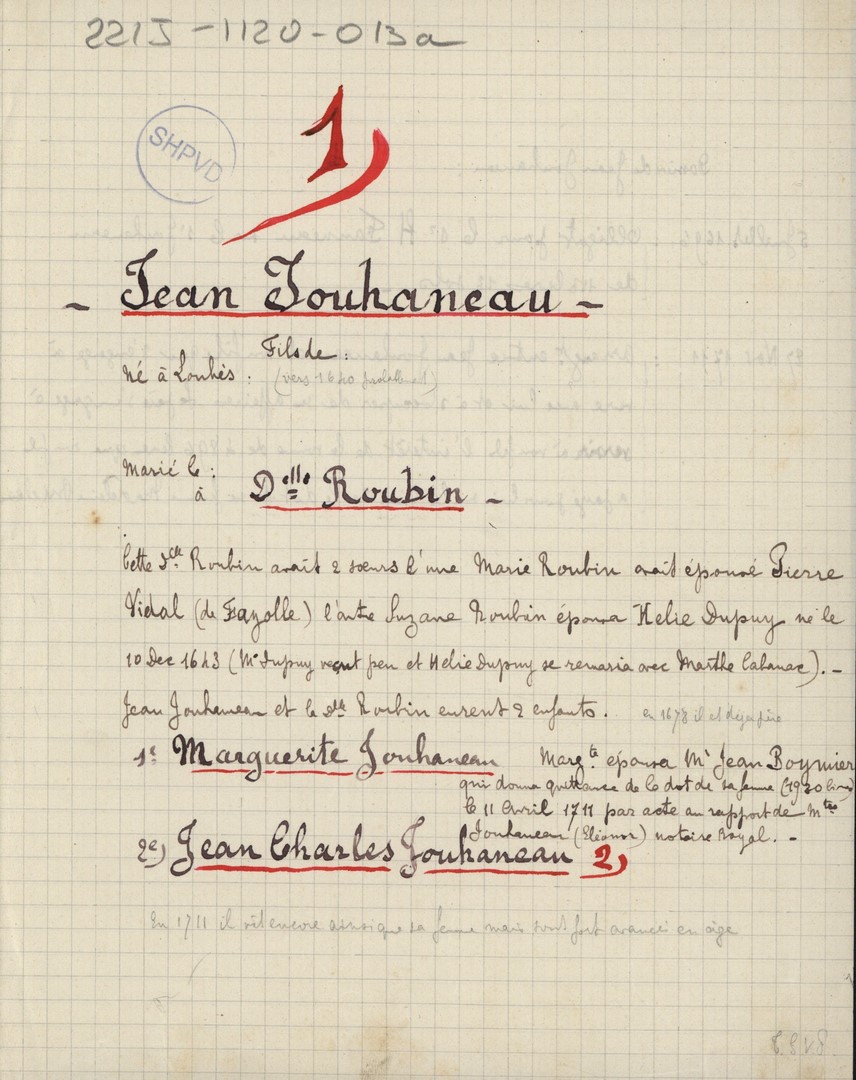 221J-1120-013a
SHPVD
1)
- Jean Jouhaneau -
Fils de :
né à Lonhès : (vers 1640 probablement)
Marié le :
à Delle Roubin -
Cette Delle Roubin avait 2 sœurs l'une Marie Roubin avait épousé Pierre
Vidal (de Fayolle) l'autre Suzane Roubin épousa Helie Dupuy né le
10 Dec 1643 (Me Dupuy veçut peu et Helie Dupuy se remaria avec Marthe Cabanac). -
Jean Jouhaneau et la Delle Roubin eurent 2 enfants. en 1678 il est déjà père
1e Marguerite Jouhaneau Margte épousa Mr Jean Boymier
qui donna quittance de la dot de sa femme (1920 livres)
le 11 Avril 1711 par acte au rapport de Mtre
Jouhaneau (Eléonor) notaire Royal. -
2e) Jean Charles Jouhaneau 2)
En 1711 il vit encore ainsi que sa femme mais sont fort avancés en âge